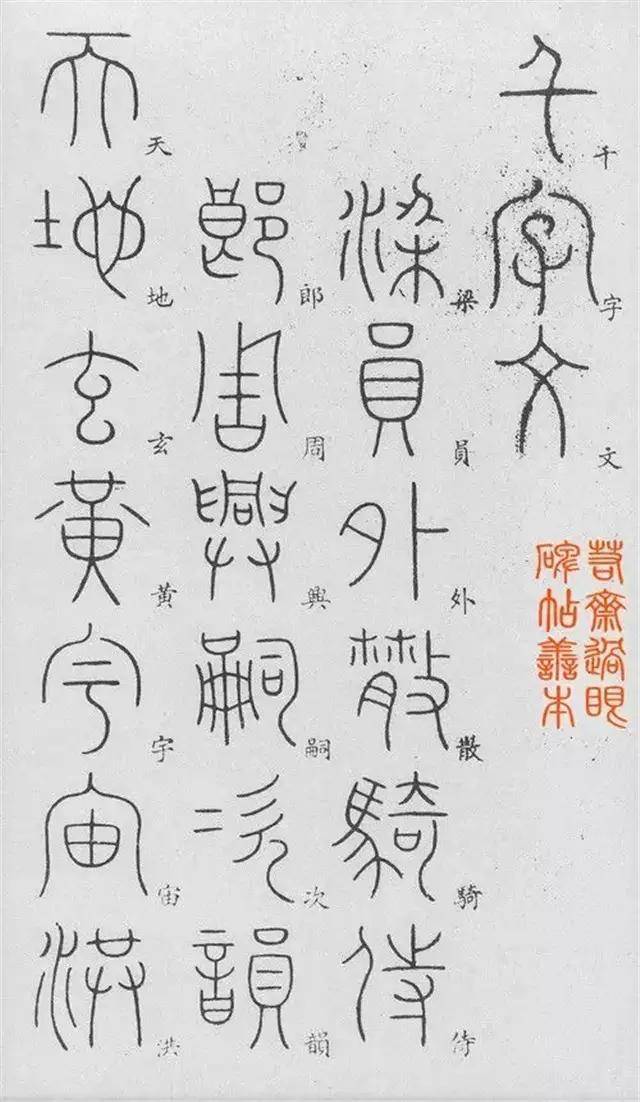 千字文
千字文
梁員外散騎侍
梁員外散騎侍
郎周興嗣次韻
郎周興嗣次韻
天地玄黃宇宙洪
天地玄黃宇宙洪
齋過眼
碑帖善本